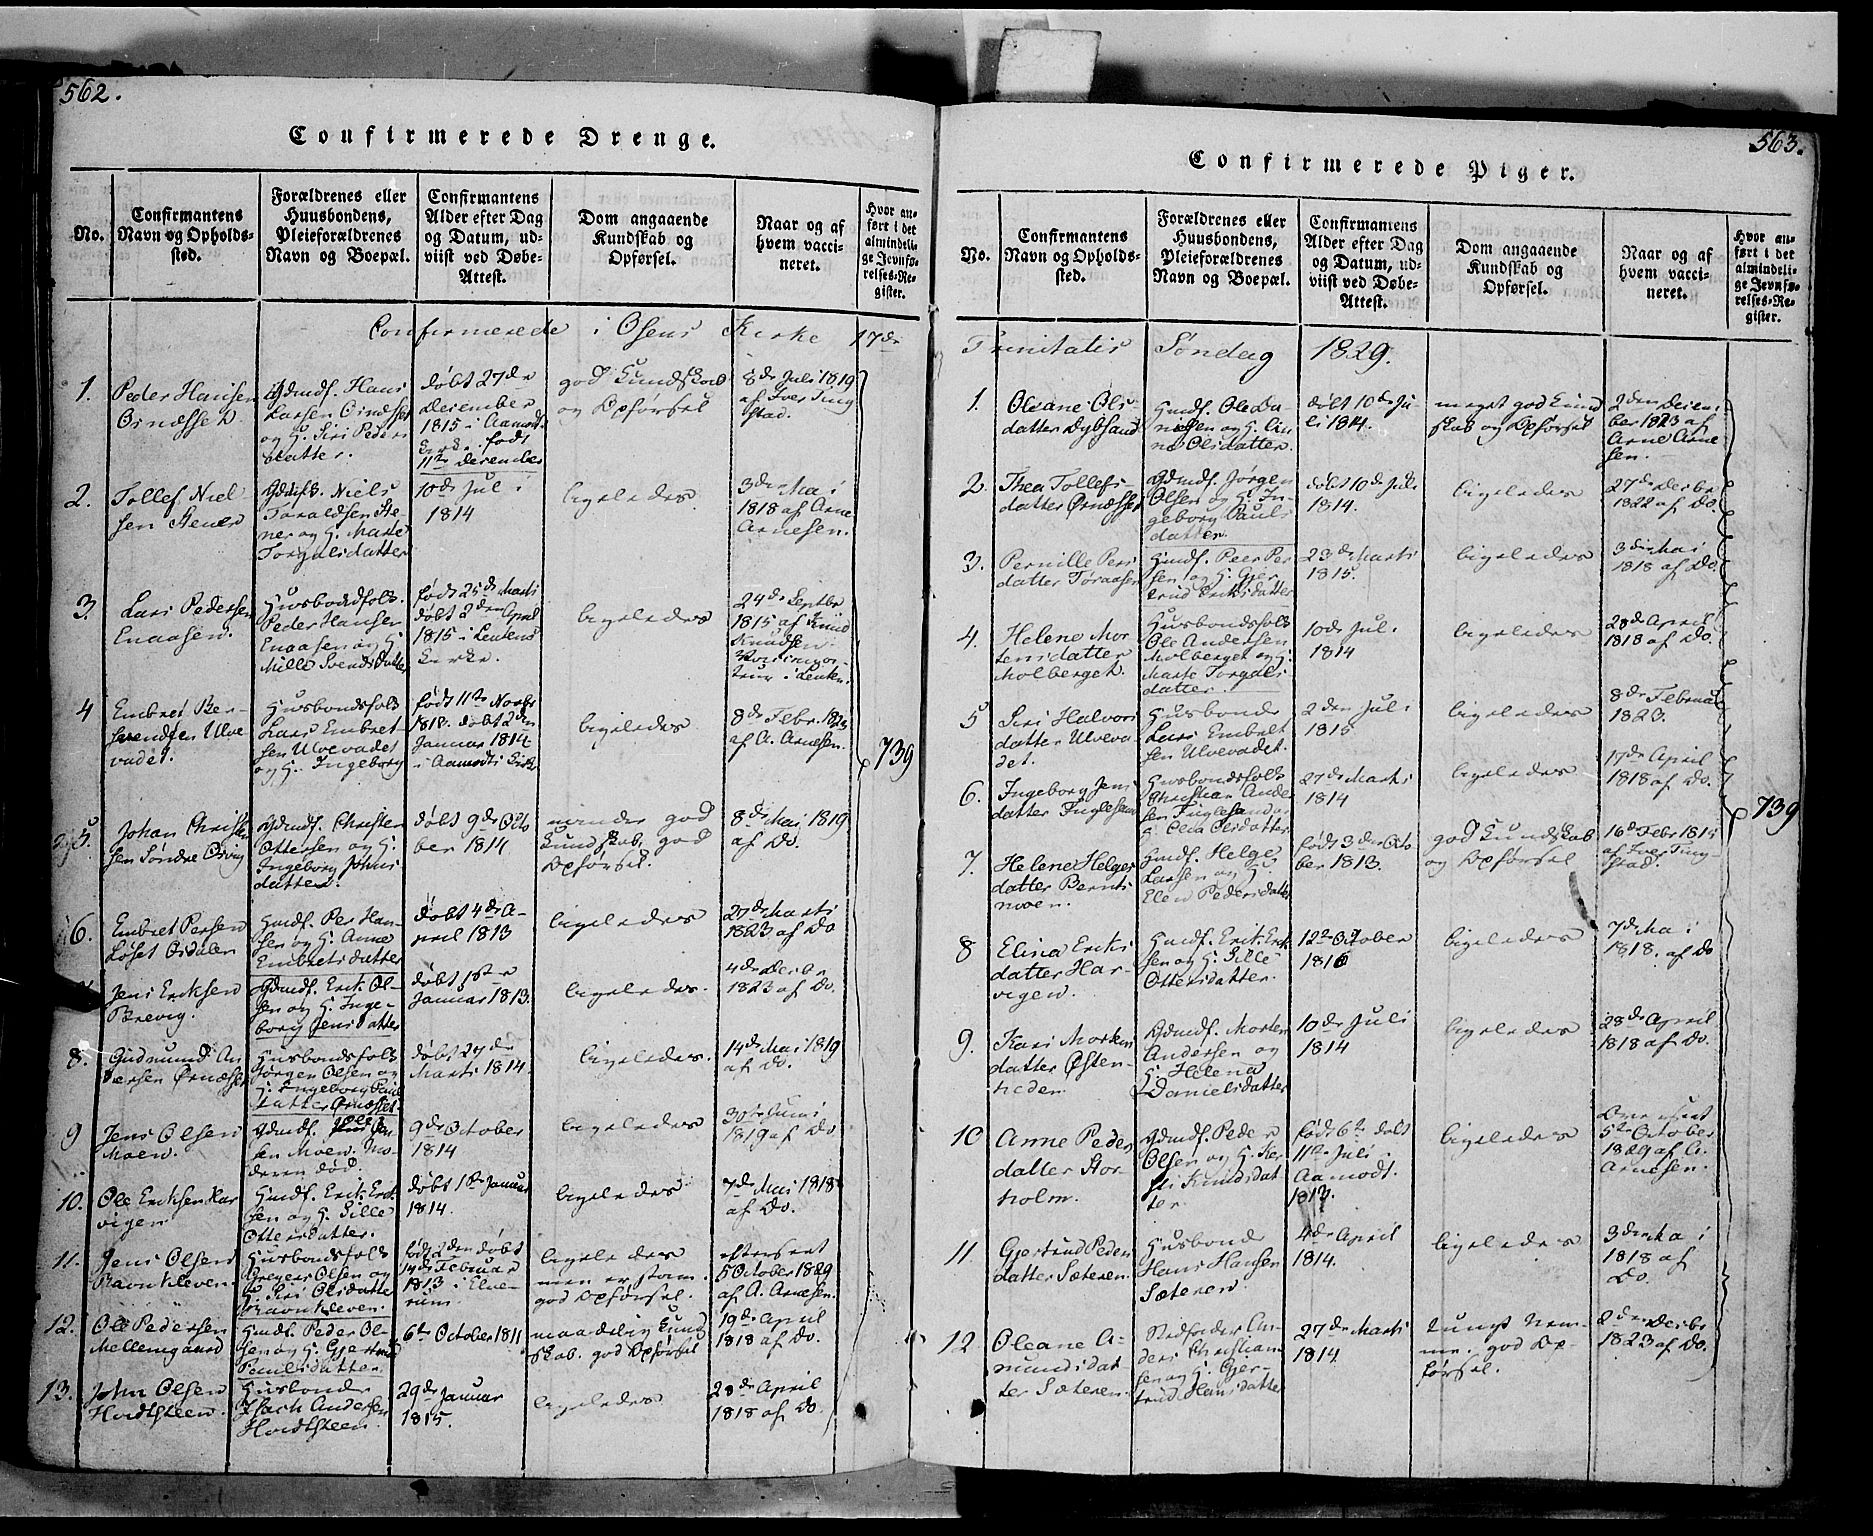 562.
Confirmerede Drenge.
No.
Confirmantens
Navn og Opholds-
sted.
Forældrenes eller
Huusbondens,
Pleieforældrenes
Navn og Boepæl.
Confirmantens
Alder efter Dag
og Datum, ud-
viist ved Døbe-
Attest.
Dom angaaende
Kundskab og
Opførsel.
Naar og af
hvem vacci-
neret.
Hvor an-
ført i det
almindeli-
ge Jevnfø-
relses-Re-
gister.
Confirmerede i Osens Kirke 17de
1.
Peder Hansen
Gdmdf. Hans
Larsen
og H. Siri Peders
datter.
døbt 27de
December
1815 i Aamodts
Kirke. født
11te December
god Kundskab
og Opførsel
8de Juli 1819
af Iver Ting
stad.
2.
Tollef Niel
sen Stener
Gdmfs. Niels
Taraldsen Ste-
ner og H. Marte
Torgalsdatter
10de Juli
1814
ligeledes
3de Mai
1818 af Arne
Arnesen.
3.
Lars Pedersen
Enaasen.
Huusbondfolk
Peder Hansen
Enaasen og H.
Mille Svendsdatter
født 25de Marts
døbt 2den April
1815 i Leutens
Kirke.
ligeledes
24de Septbr
1815 af Knud
Knudsen.
i Leuten.
4
Embret Ber-
Ulve
vadet.
Husbondsfolk
Lars Embret-
sen Ulvevadet
og H. Ingeborg
født 11te Novbr
1813. døbt 2den
Januar 1814
i Aamodts Kirke
ligeledes
8de Febr. 1823
af A. Arnesen.
739
5.
Johan Christen
sen Søndre Osvig
Gdmdf. Christen
Ottersen og H.
Ingeborg Johns
datter.
døbt 9de Octo
ber 1814
minder god
Kundskab, god
Opførsel.
8de Mai 1819
af Do.
6.
Embret Persen
Løset Osdalen
Hmdf. Per Han-
sen og H. Anne
Embretsdatter
døbt 4de A-
pril 1813
ligeledes
27de Marts
1823 af Do
Jens Eriksen
Brevig.
Gdmdf. Erik Ol-
sen og H. Inge-
borg Jensdatter
døbt 1ste
Januar 1813.
ligeledes.
4de Decbr
1823 af Do.
8.
Gudmund An
dersen Ørnæsset
Husbondsfolk
Jørgen Olsen og
H. Ingeborg Pauls
datter Ørnæsset.
døbt 27de
Marts 1814
ligeledes.
14de Mai 1819
af Do.
9
Jens Olsen
Moen.
Gdmdf. Ole
sen Moen. Mo-
deren død.
9de October
1814
ligeledes
30te Juni
1819 af Do
10.
Ole Eriksen Har
vigen
Hmdf. Erik Erik
sen og H. Sille
Ottersdatter.
døbt 1ste Januar
1814.
ligeledes
7de Mai 1818
af Do.
11.
Jens Olsen
Ravnkleven.
Husbondsfolk
Greger Olsen og
H. Siri Olsdatter
Ravnkleven.
født 2den døbt
14de Februar
1813 i Elve-
rum.
ligeledes
men er stam.
god Opførsel.
efterseet
5 October 1829
af A. Arnesen.
12.
Ole Pedersen
Mellemgaard
Hmdf. Peder Ol-
sen og H. Gjertrud
Paulsdatter
6te October 1811
maadelig Kund
skab. god Opførsel
19de April
1818 af Do.
13.
John Olsen
Hvidtsteen.
Husbonde
Isach Andersen
Hvidtsteen.
29de Januar
1815.
ligeledes
28de April
1818 af Do.
563.
Confirmerede Piger.
No.
Confirmantens
Navn og Opholds-
sted.
Forældrenes eller
Huusbondens,
Pleieforældrenes
Navn og Boepæl.
Confirmantens
Alder efter Dag
og Datum, ud-
viist ved Døbe-
Attest.
Dom angaaende
Kundskab og
Opførsel.
Naar og af
hvem vacci-
neret.
Hvor an-
ført i det
almindeli-
ge Jevnfø-
relses-Re-
gister.
Trinitatis Søndag 1829.
1.
Oleane Ols-
datter Dybsand
Hmdf. Ole Da-
nielsen og H.
Olsdatter.
døbt 10de Ju-
li 1814.
meget god Kund
skab og Opførsel
2den Decem-
ber 1823 af
Arne Arne
sen.
2.
Thea Tollefs-
datter Ørnæsset
Gdmdf. Jørgen
Olsen og H. In-
geborg Pauls
datter.
døbt 10de Juli
1814.
ligeledes
27de Decbr
1822 af Do.
3.
Pernille Pers
datter Toraasen
Hmdf. Peer Per
sen og H. Gjer
trud Eriksdatter
23de Marts
1815.
ligeledes
3die Mai
1818 af Do.
4.
Helene Mor
tensdatter
Molberget.
Husbondsfolk
Ole Andersen
Molberget og H.
Marte Torgals
datter.
10de Juli
1814
ligeledes
28de April
1818 af Do.
5
Siri Halvors
datter Ulveva-
det.
Husbonde
Lars Embret
sen Ulvevadet.
2den Juli
1815
ligeledes
8de Februar
1823.
6.
Ingeborg Jens
datter Fuglesan
Husbondsfolk
Christian Ander
sen Fuglesand og
H. Olea Olsdatter
27de Marts
1814
ligeledes
17de April
1818 af Do.
739
7.
Helene Helges
datter Bernts
moen.
Hmdf. Helge
Larsen og H.
Elen Pedersdatter
født 3den Octo
ber 1813.
god Kundskab
og Opførsel
16de Febr 1815
af Iver Ting-
stad.
8
Elina Eriks
datter Har-
vigen.
Hmdf. Erik Erik
sen og H. Sille
Ottersdatter.
12te October
1816
ligeledes
7de Mai
1818. af Do
9.
Kari Morten
datter Østen-
heden
Gdmdf. Morten
Andersen og
H. Helena
Danielsdatter
10de Juli
1814
ligeledes
28de April
1818 af Do.
10
Anne Peders
datter Stor-
holm.
Gdmdf. Peder
Olsen og H. Ker-
sti Knudsdat
ter.
født 6te døbt
11te Juli
Aamodt.
1813.
ligeledes
5te October
1829 af A.
Arnesen.
11
Gjertrud Peders
datter Sæteren.
Husbonde
Hans Hansen
Sæteren
4de April
1814.
ligeledes
3die Mai
1818 af
Do.
12
Oleane A-
mundsdat-
ter Sæteren.
Stedfader An-
ders Christian-
sen og H. Gjer-
trud Hansdatter
27de Marts
1814.
tungt Nem-
me. god Op-
førsel.
2den Decbr
1823 af Do.